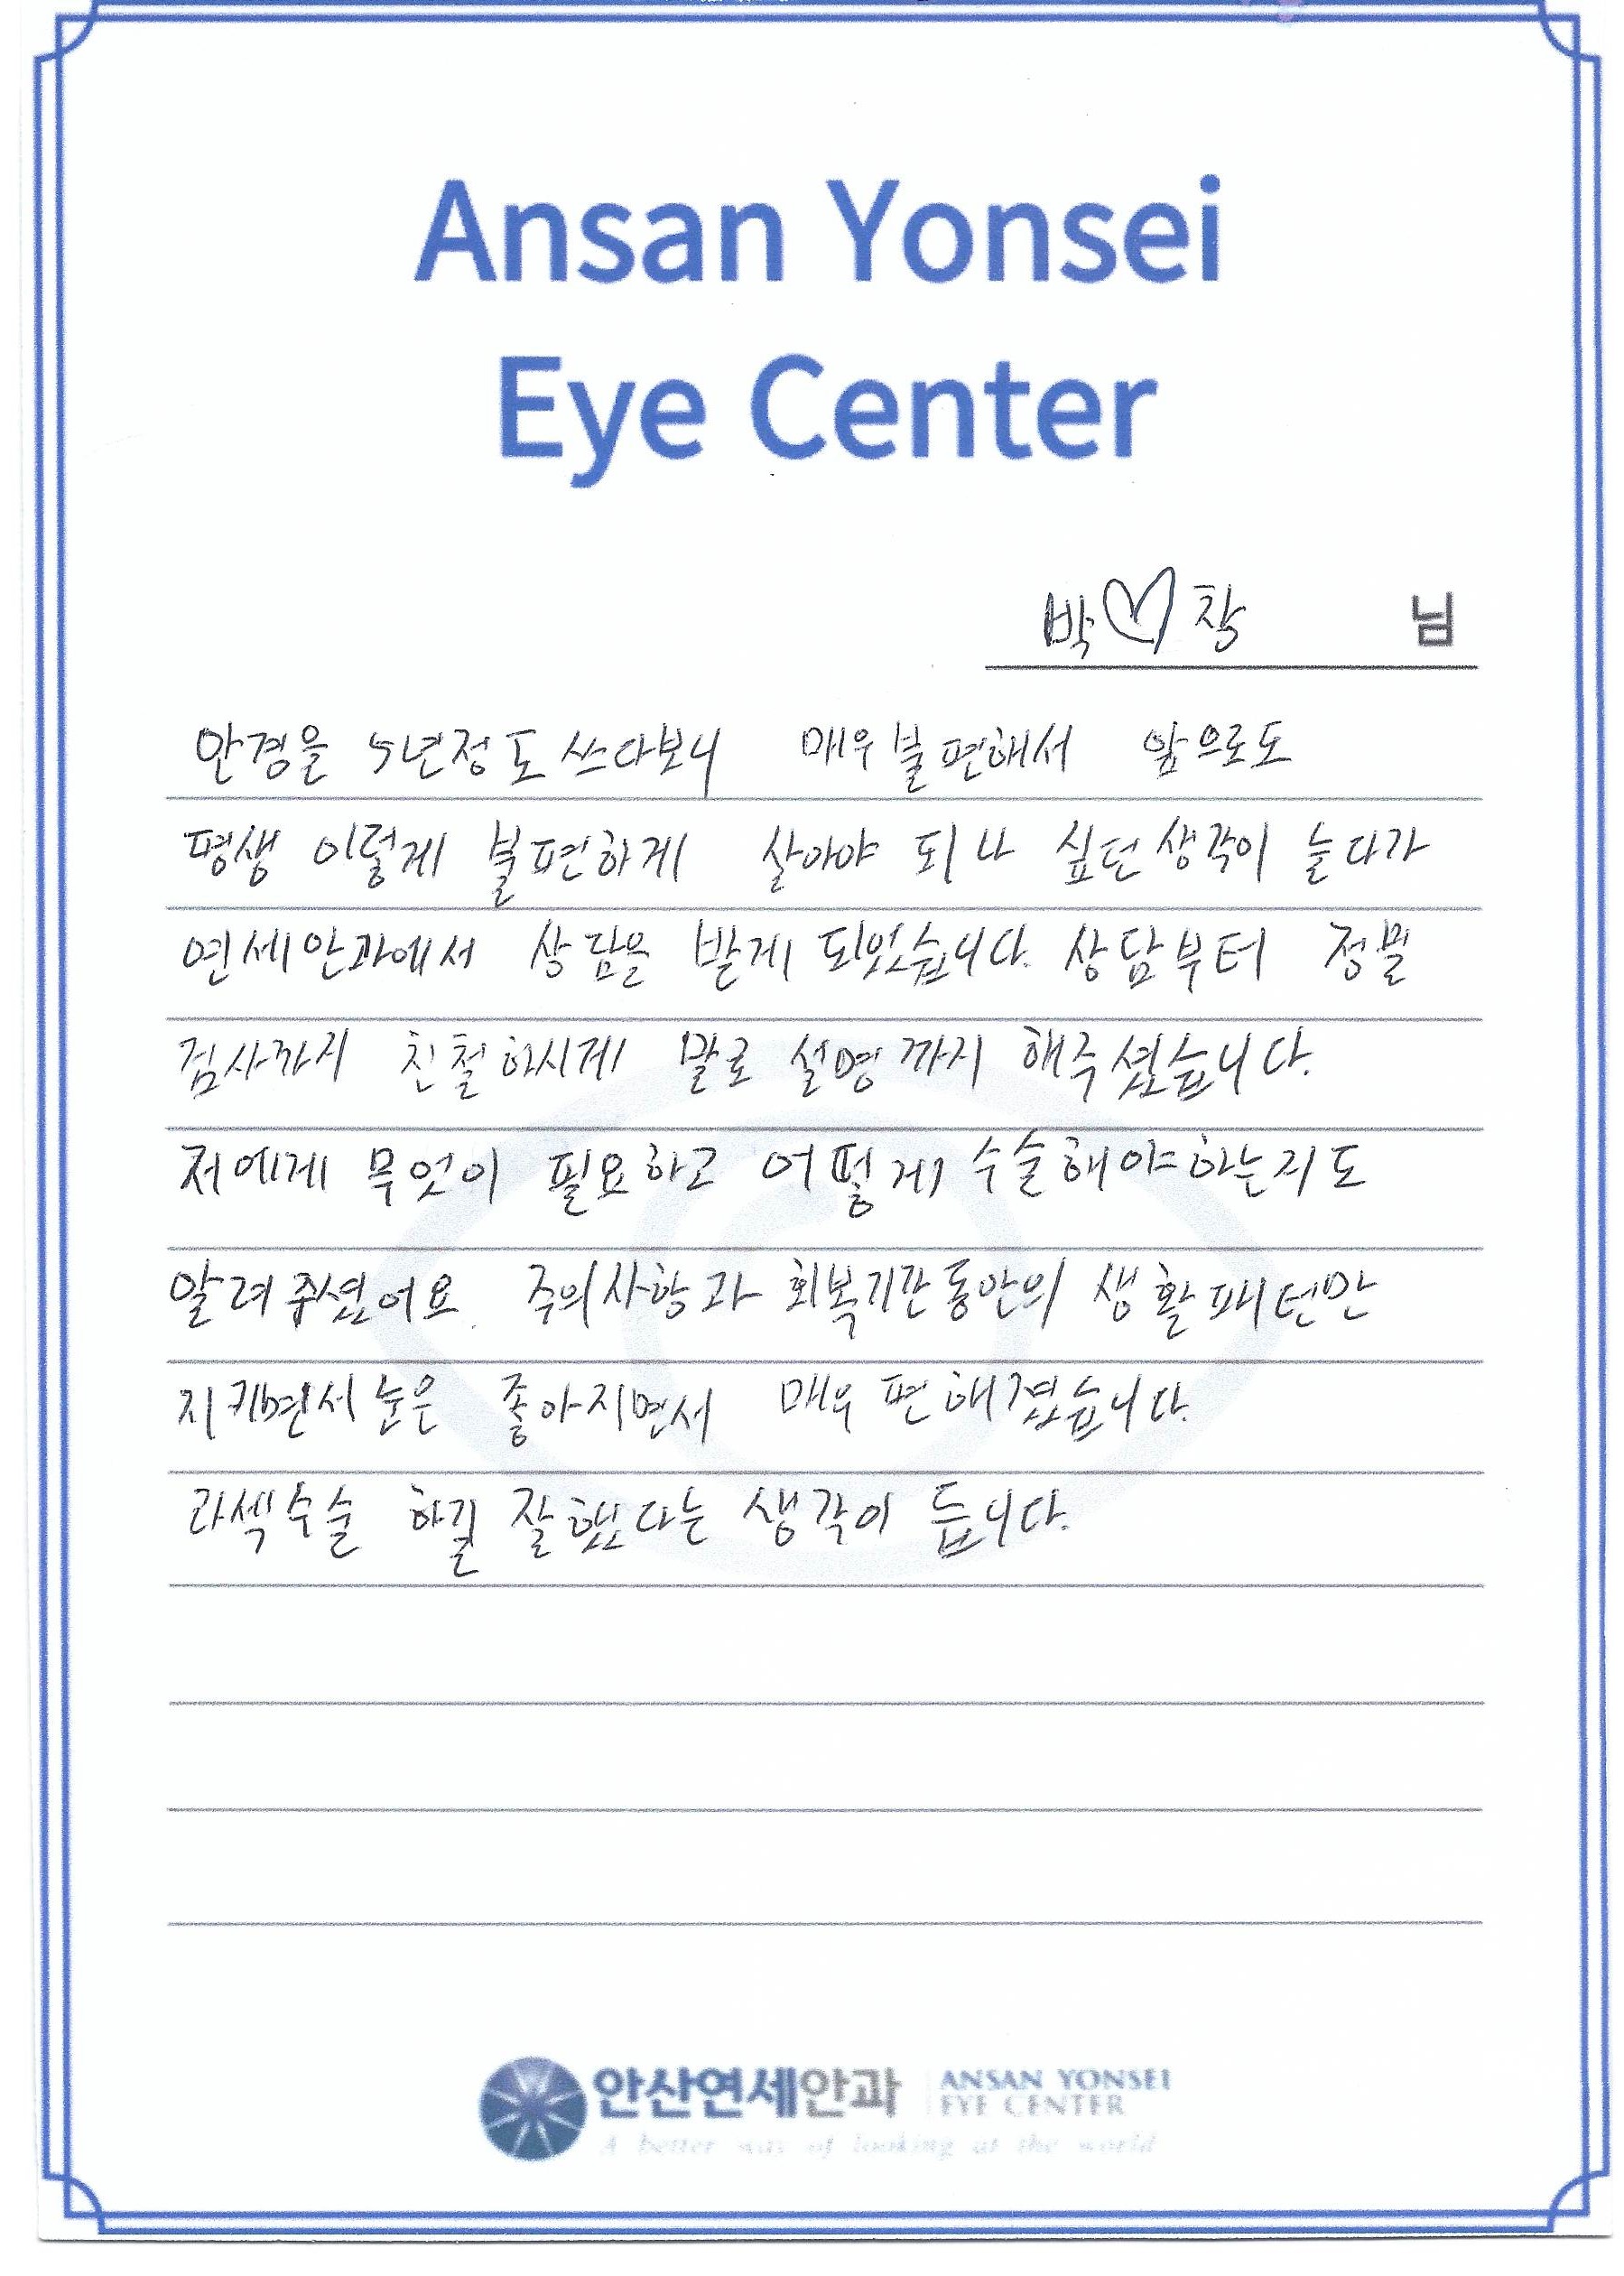 Ansan Yonsei
Eye Center
박♡창 님
안경을 5년정도 쓰다보니 매우 불편해서 앞으로도
평생 이렇게 불편하게 살아야 되나 싶던 생각이 늘다가
연세안과에서 상담을 받게 되었습니다. 상담부터 정밀
검사까지 친철하시게 말로 설명까지 해주셨습니다.
저에게 무엇이 필요하고 어떻게 수술해야하는지도
알려주셨어요. 주의사항과 회복기간동안의 생활패턴만
지키면서 눈은 좋아지면서 매우 편해졌습니다.
라섹수술 하길 잘했다는 생각이 듭니다.
안산연세안과 ANSAN YONSEI
EYE CENTER
A better way of looking at the world